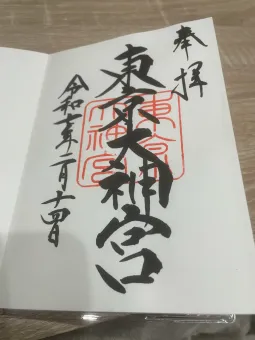 奉拝
東京大神宮
東京
大神宮
令和七年二月十四日